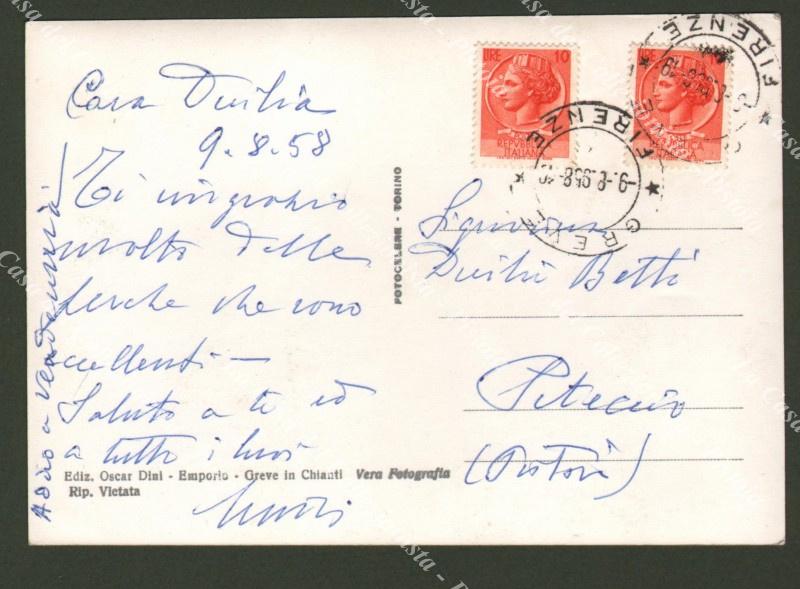 Cara Duilia
9.8.58
Ti ringrazio
molto delle
pesche che sono
eccellenti —
Saluto a te ed
a tutti i tuoi
Addio a Vendemmia
Ediz. Oscar Dini - Emporio - Greve in Chianti Vera Fotografia
Rip. Vietata
FOTOCELERE - TORINO
LIRE 10
REPVBBLICA
ITALIANA
LIRE
FIRENZE
GREVE
FIRENZE
Signorina
Duilia Betti
Piteccio
(Pistoia)